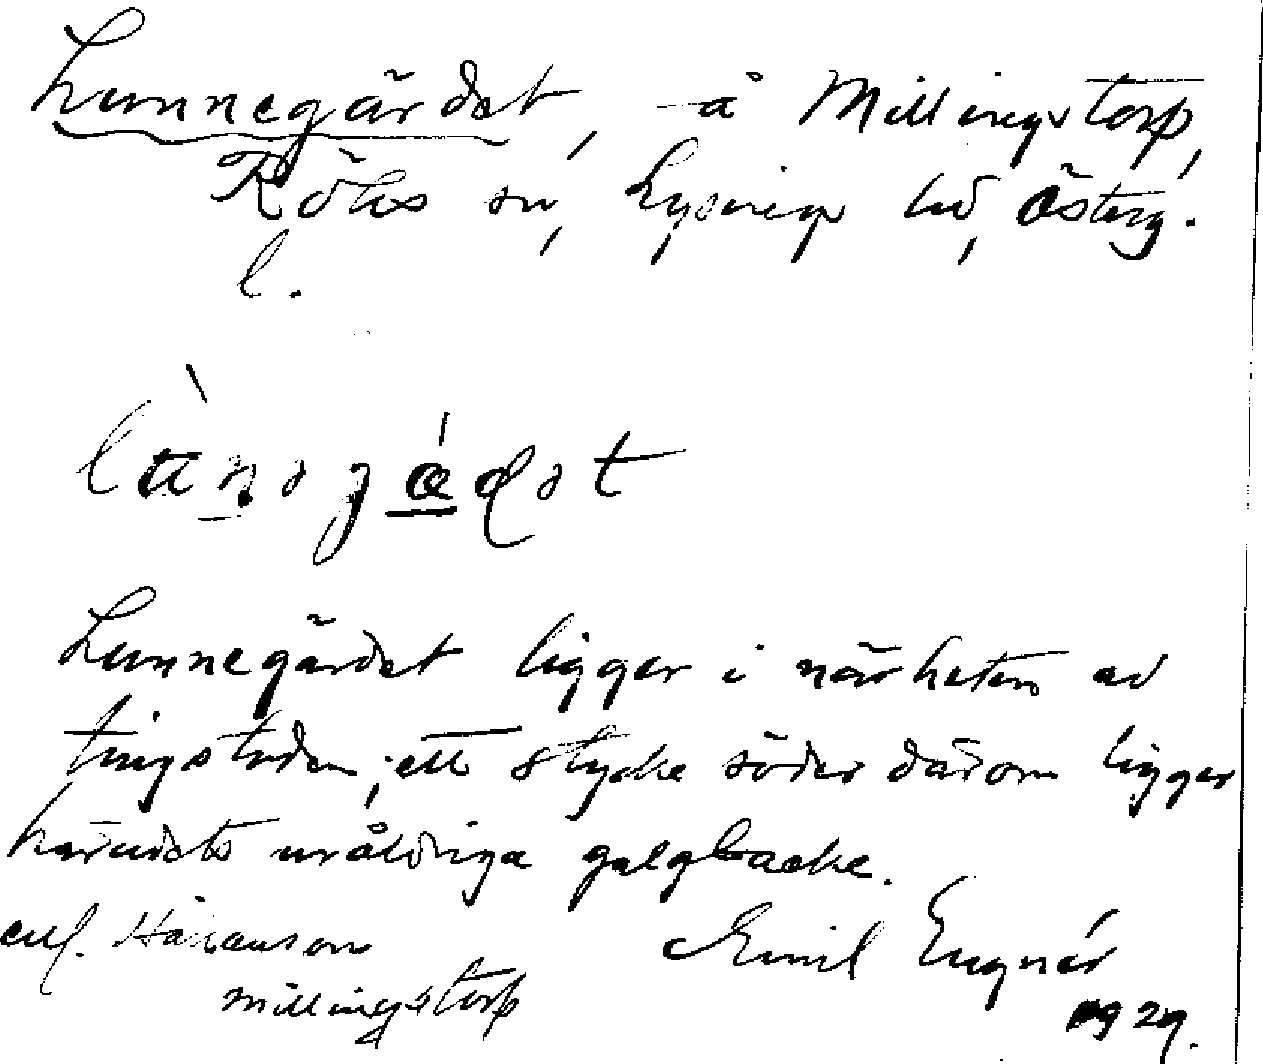 Lunnegärdet, å Millingstorp,
Röks sn, Lysings hd, Österg.
l.
Lunnegärdet ligger i närheten av
tingstaden; ett stycke söder därom ligger
häradets uråldriga galgbacke.
enl. Håkanson
Millingstorp
Emil Engnér
1929.